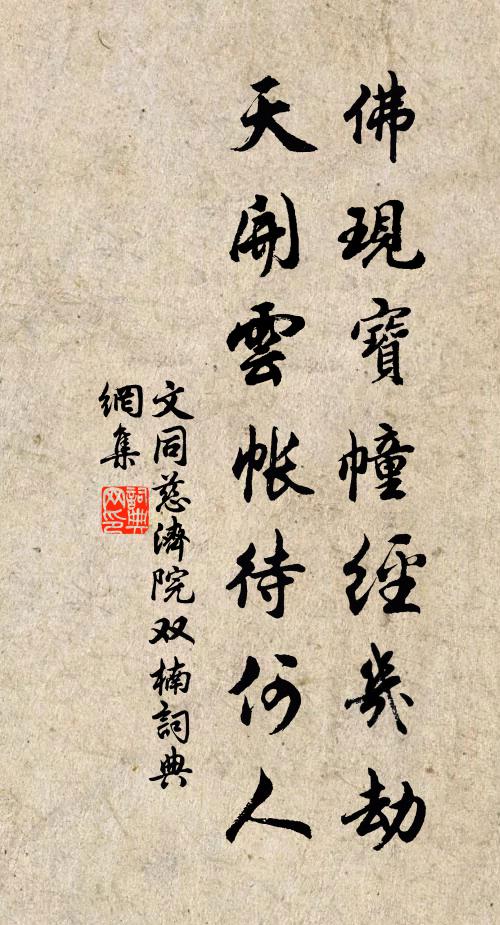 佛現寶幢經幾劫
天開雲帳待何人
文同慈濟院双楠詞典
網集
詞典
网印